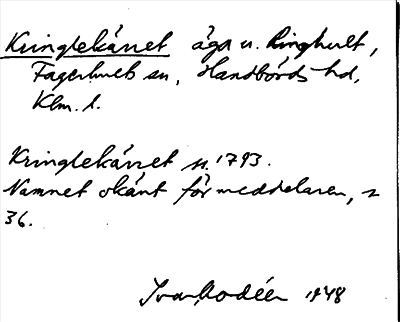 Kringlekärret äga u. Ringhult,
Fagerhults sn, Handbörds hd,
Klm. l.
Kringlekärret 1793.
Namnet okänt för meddelaren, 
36.
Ivar Modéer 1948